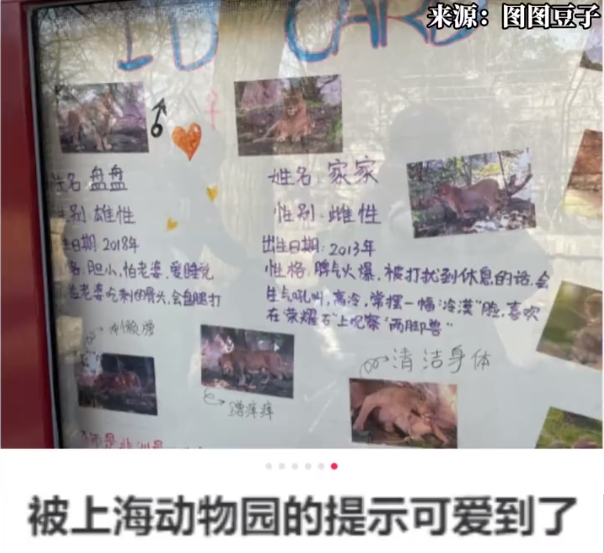 来源：图图豆子
ID CARD
姓名 盘盘
性别 雄性
生日期 2018年
格，胆小，怕老婆，爱睡觉
老婆吃剩的骨头，会盘腿打
伸懒腰
蹭痒痒
姓名 家家
性别 雌性
出生日期：2013年
性格，脾气火爆，被打扰到休息的话，会
生气吼叫，高冷，常摆一幅"冷漠"脸，喜欢
在"荣耀石"上观察"两脚兽"
清洁身体
被上海动物园的提示可爱到了